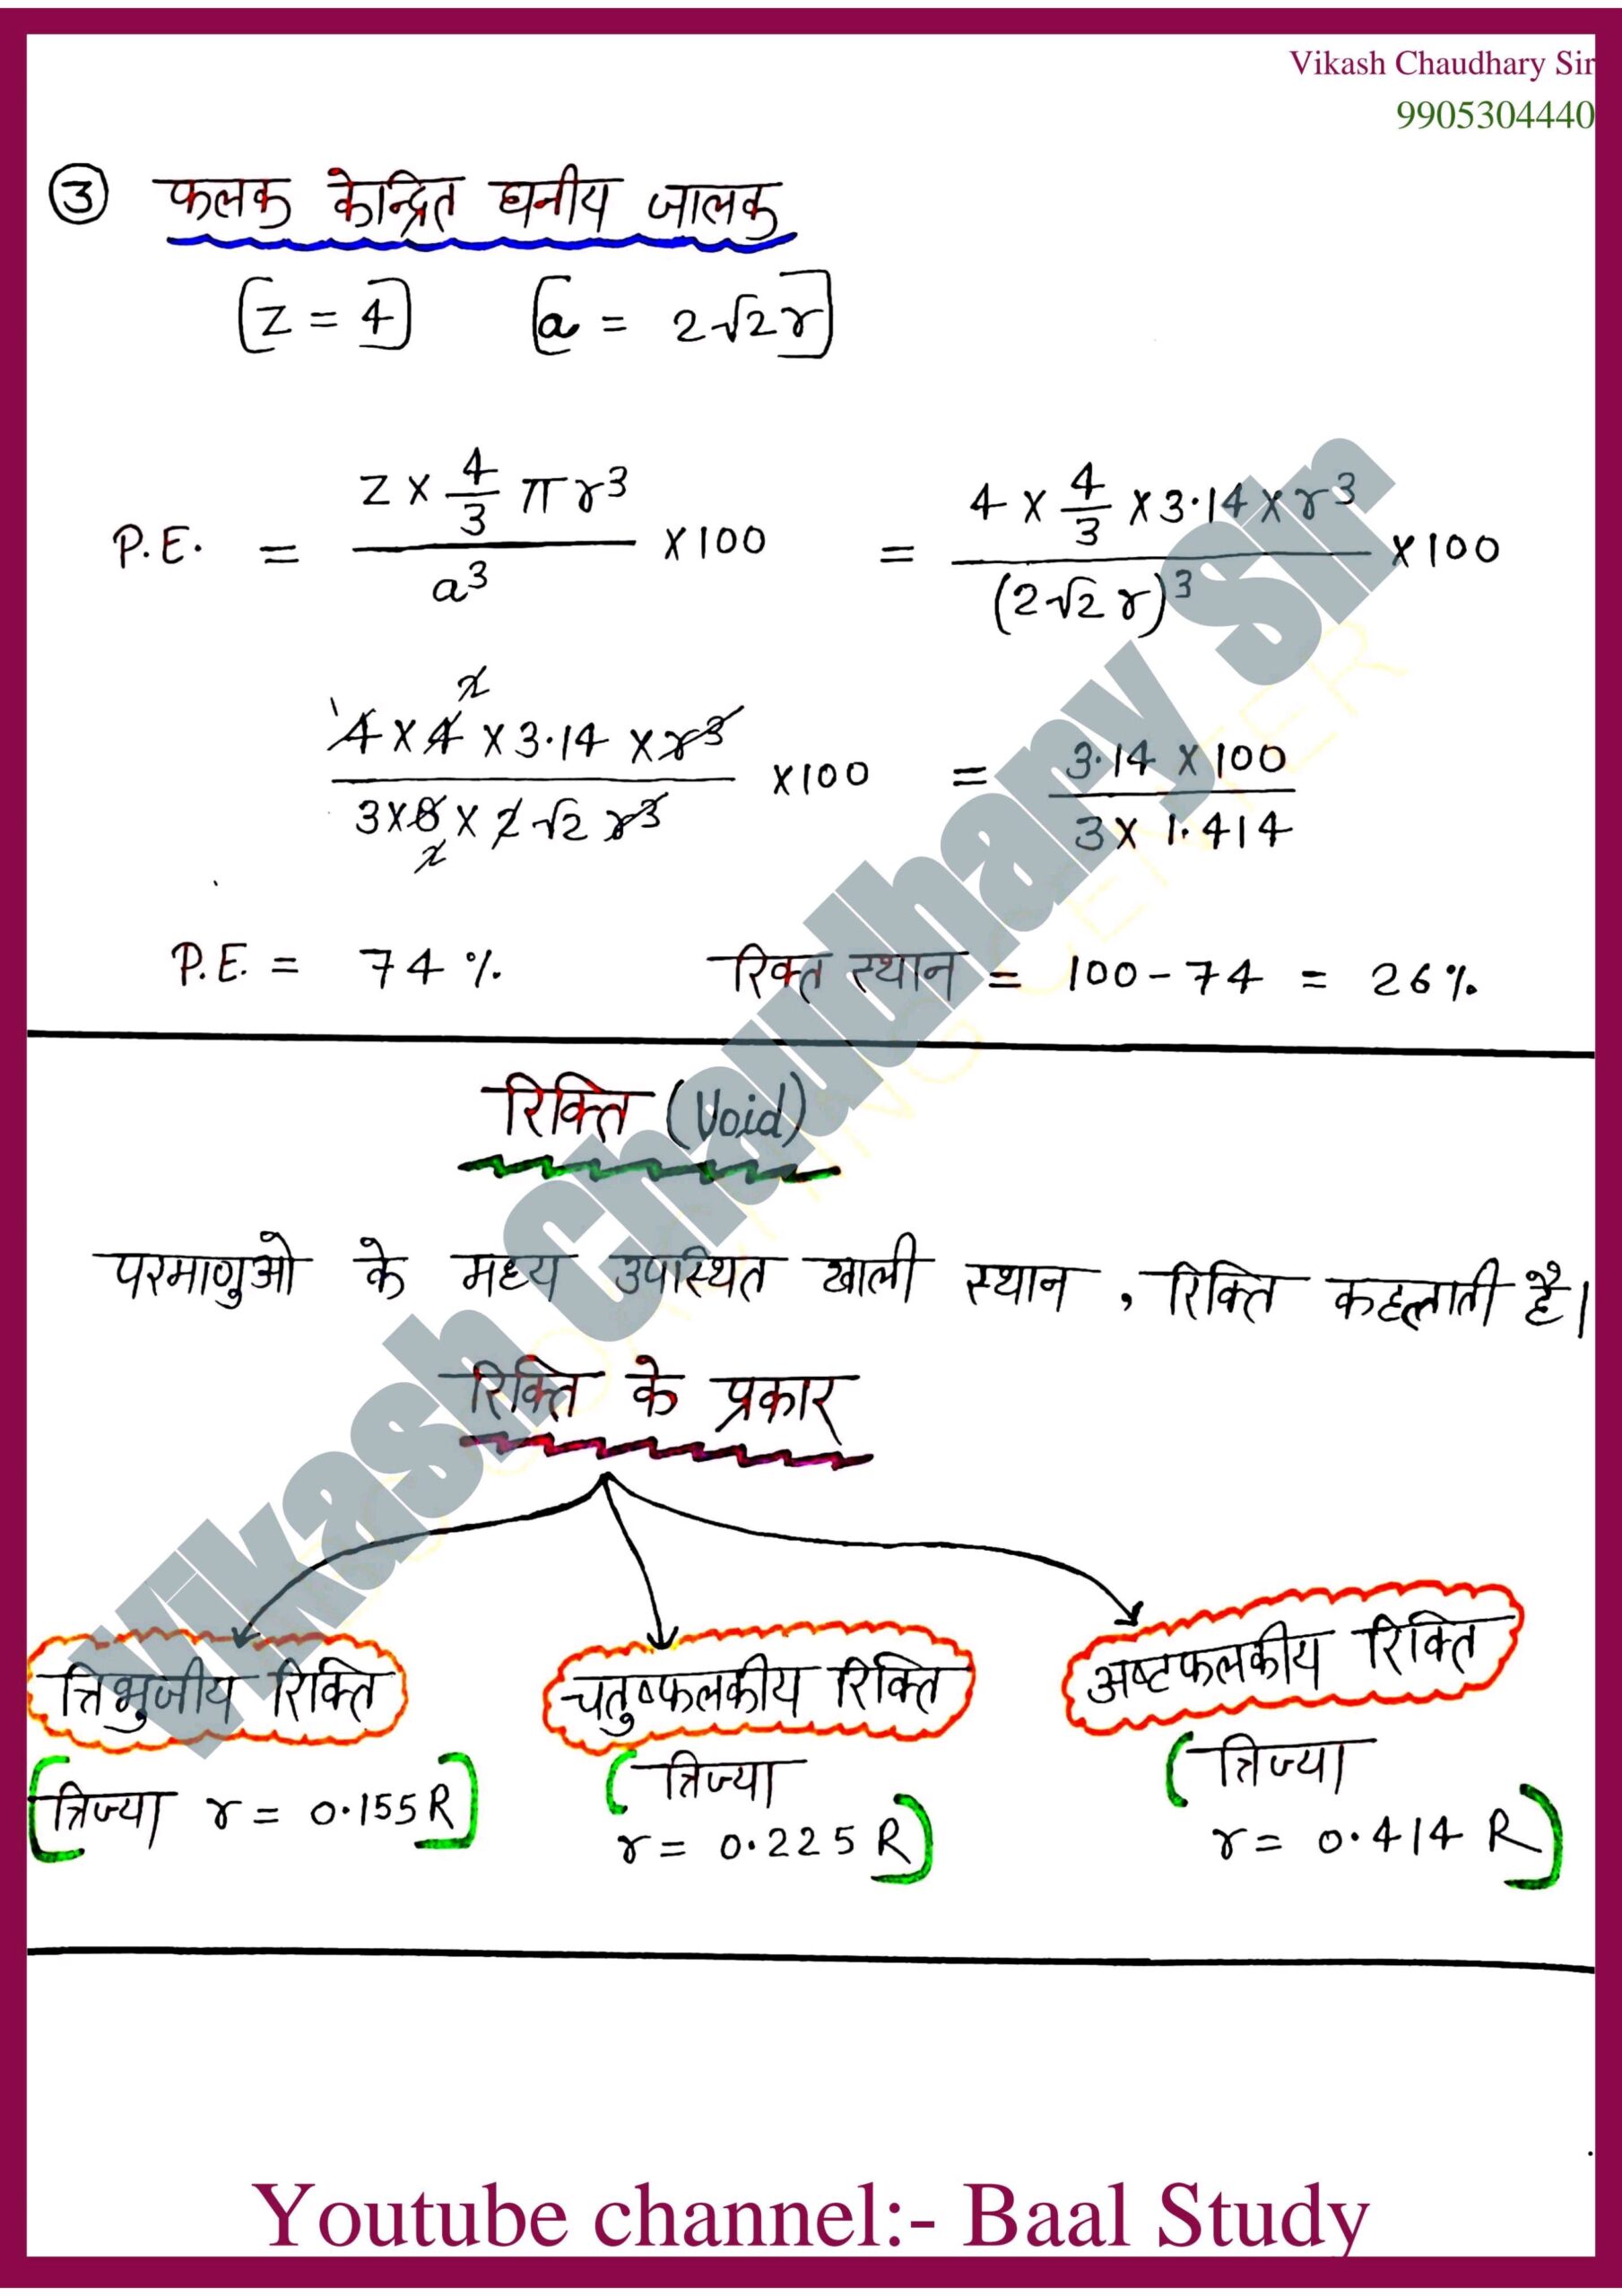 Vikash Chaudhary Sir
9905304440
③ फलक केन्द्रित घनीय जालक
[Z = 4] [a = 2√2r]
P.E. = (Z × 4/3 πr³)/a³ × 100 = (4 × 4/3 × 3.14 × r³)/(2√2 r)³ × 100
(4 × 4 × 3.14 × r³)/(3 × 8 × 2√2 r³) × 100 = (3.14 × 100)/(3 × 1.414)
P.E. = 74 % रिक्त स्थान = 100 - 74 = 26%
रिक्ति (Void)
परमाणुओ के मध्य उपस्थित खाली स्थान , रिक्ति कहलाती है।
रिक्ति के प्रकार
त्रिभुजीय रिक्ति चतुष्फलकीय रिक्ति अष्टफलकीय रिक्ति
[त्रिज्या r = 0.155R] (त्रिज्या (त्रिज्या
r = 0.225 R) r = 0.414 R)
Vikash Chaudhary Sir
Youtube channel:- Baal Study